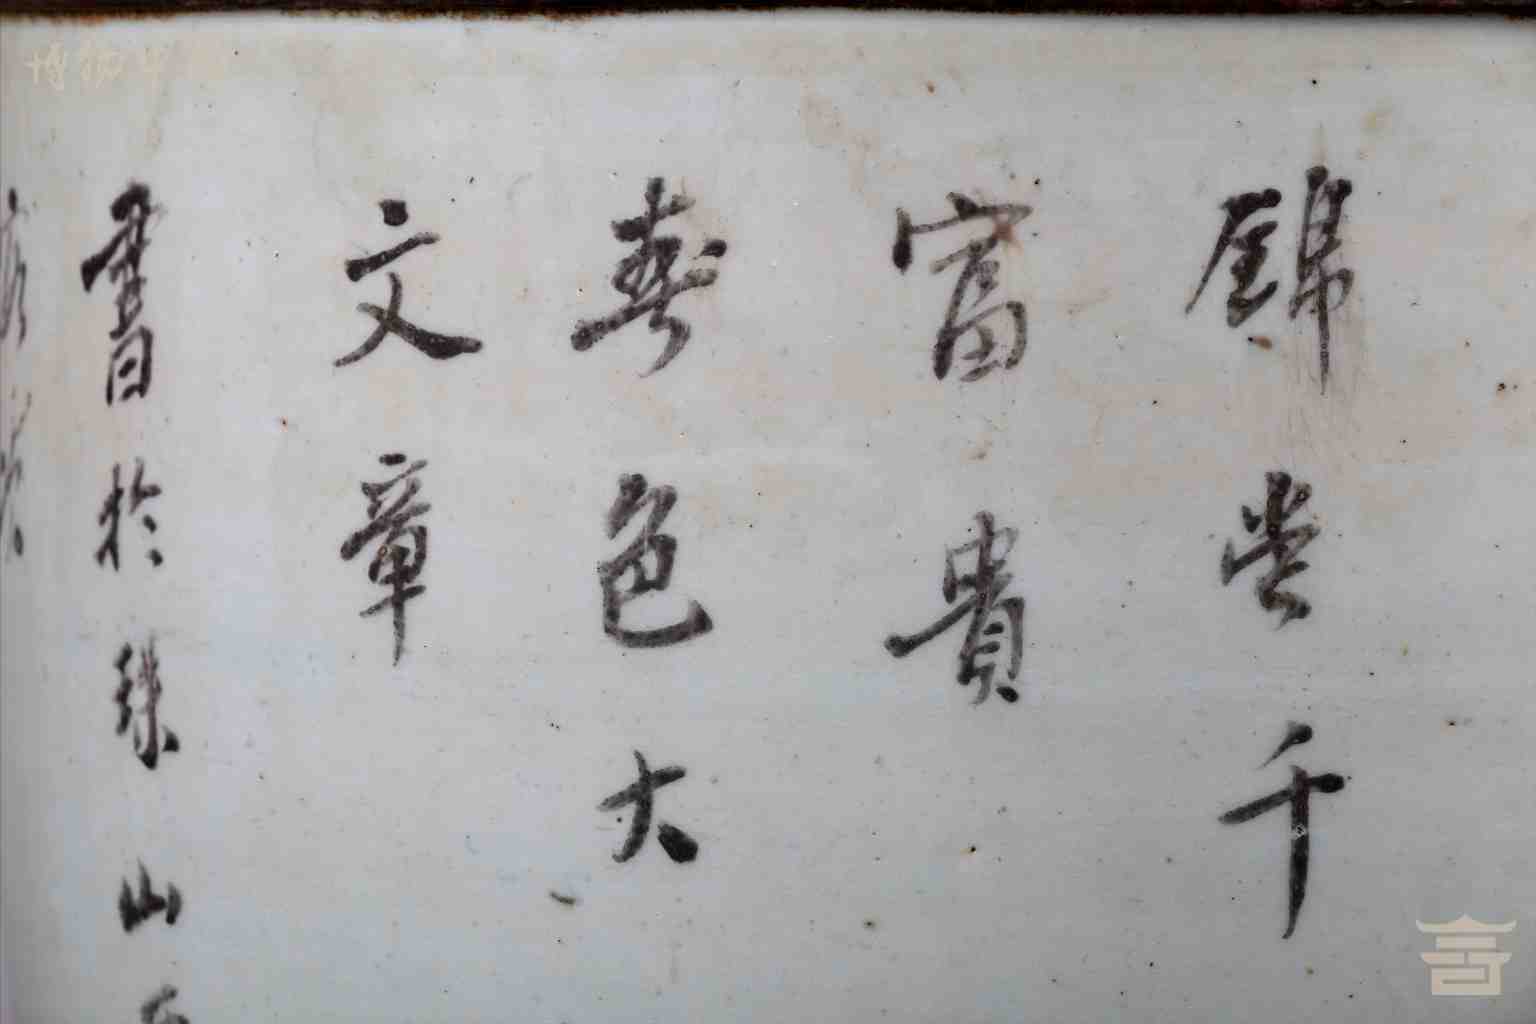 錦堂千
富貴
春色大
文章
書於珠山